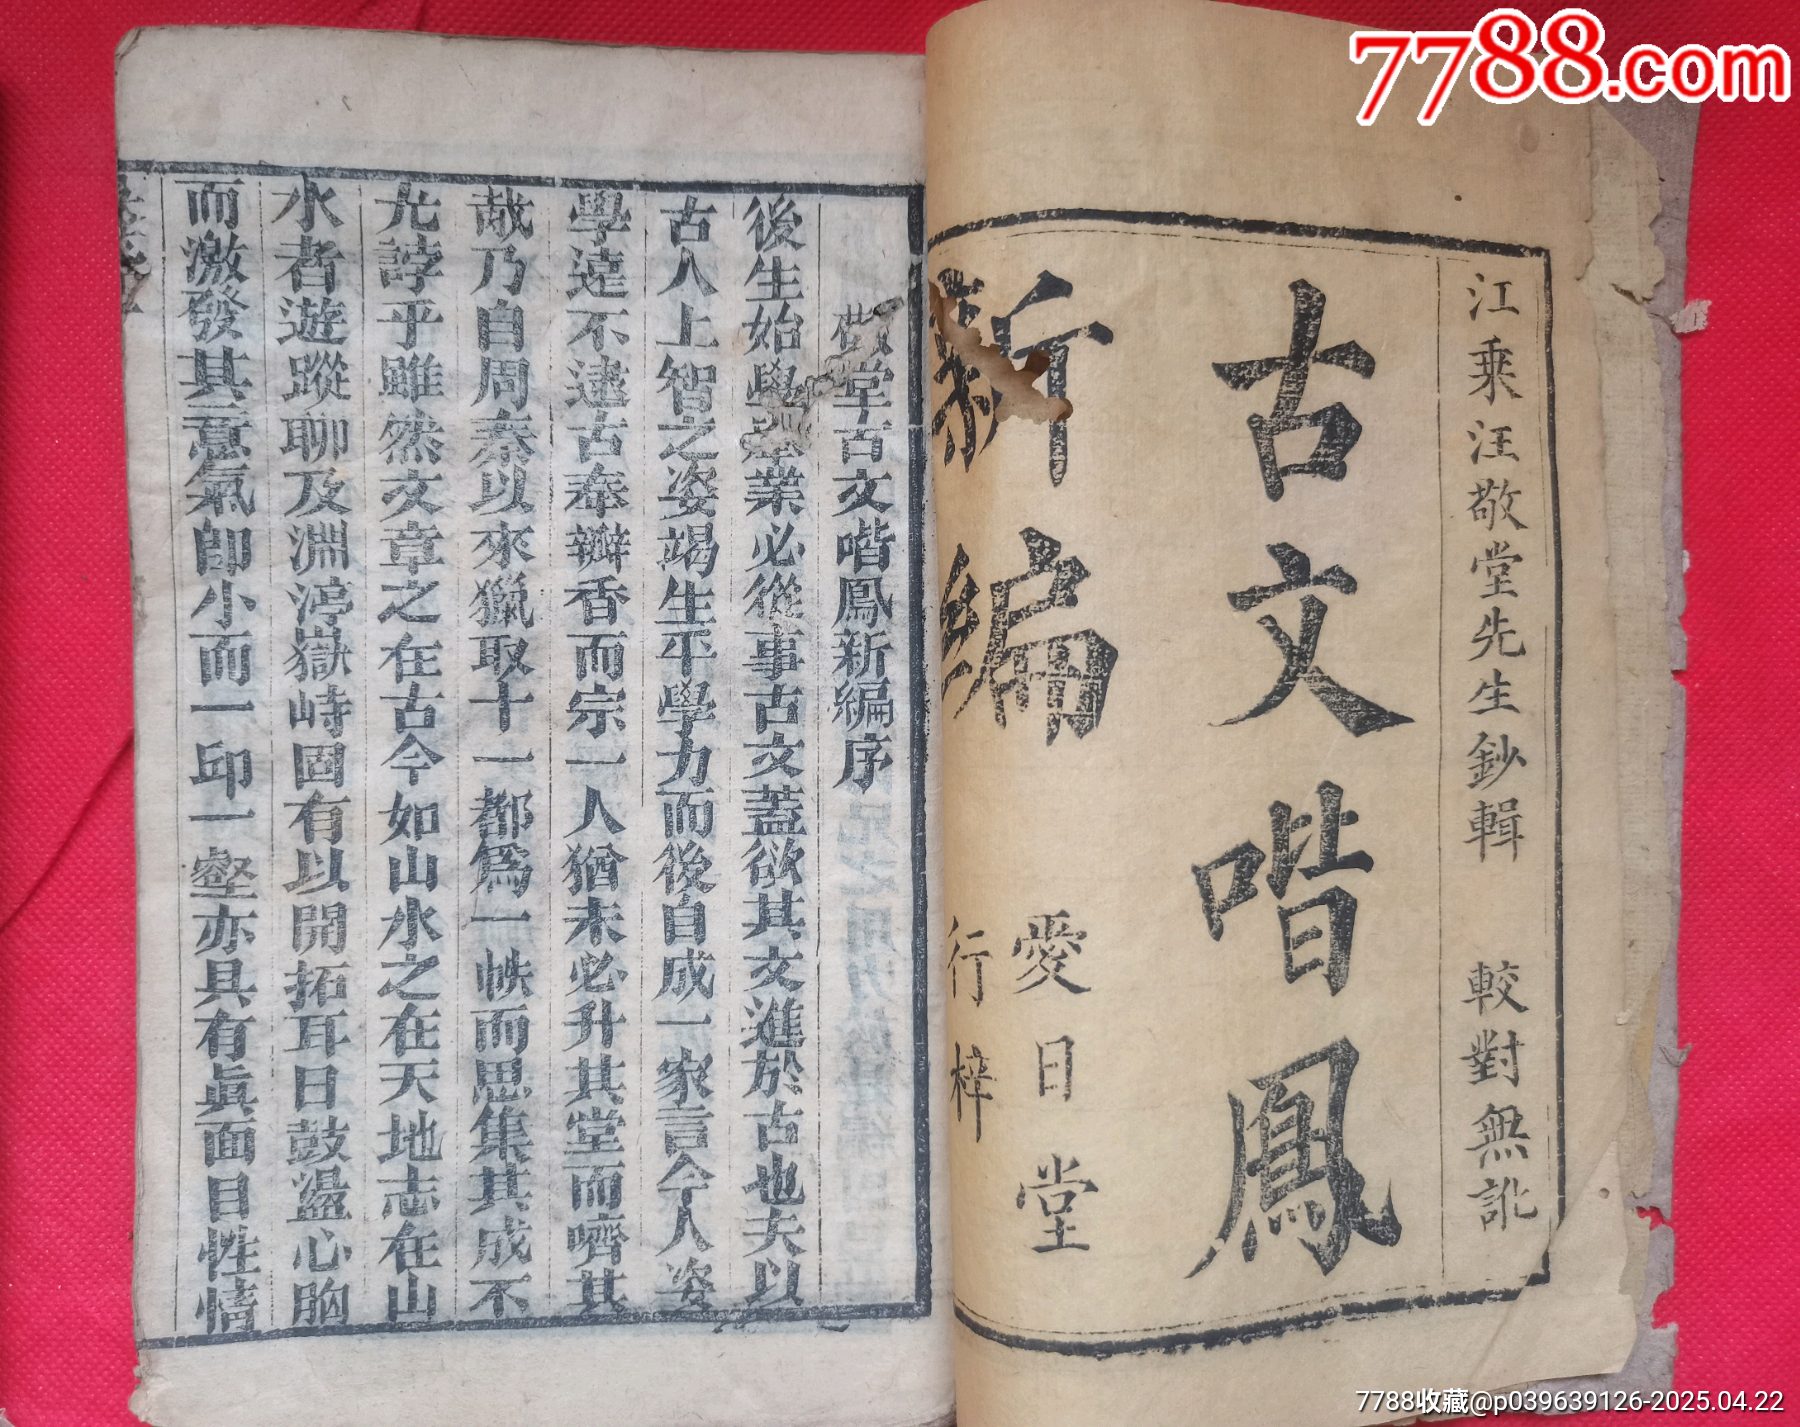 7788.com
江乗汪敬堂先生鈔輯 較對無訛
古文喈鳳
新編
愛日堂
行梓
敬堂古文喈鳳新編序
後生始學舉業必從事古文蓋欲其文進於古也夫以
古人上智之姿竭生平學力而後自成一家言今人姿
學遠不逮古奉瓣香而宗一人猶未必升其堂而嚌其
哉乃自周秦以來獵取十一都爲一帙而思集其成不
尤誖乎雖然文章之在古今如山水之在天地志在山
水者遊蹤聊及淵渟嶽峙固有以開拓耳目鼓盪心胸
而激發其意氣卽小而一邱一壑亦具有眞面目性情
7788收藏@p039639126-2025.04.22